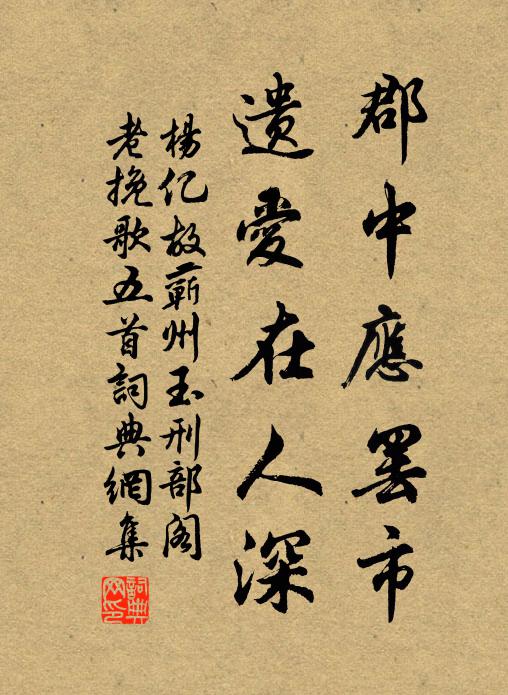 郡中應罷市
遺愛在人深
楊亿故蘄州玉刑部阁
老挽歌五首詞典網集
詞典网印